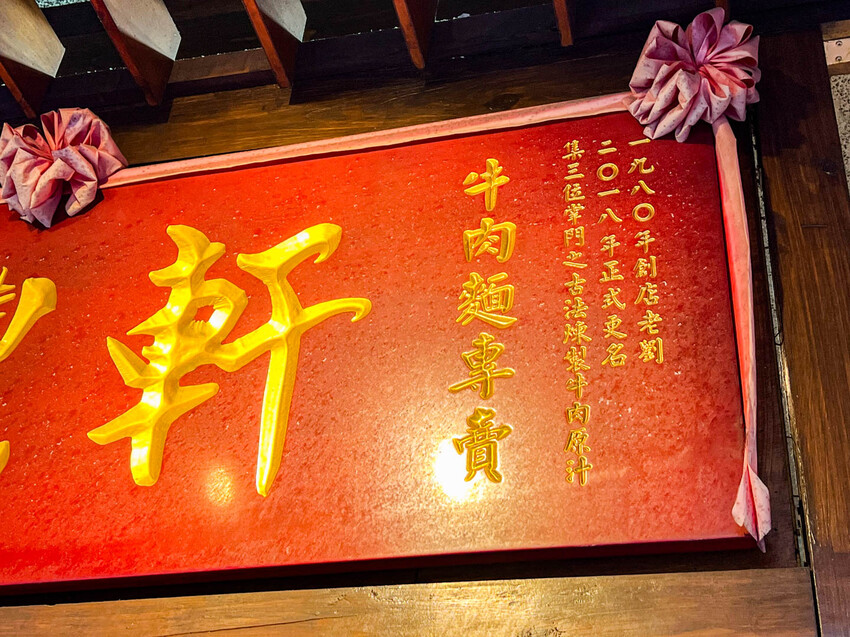 一九八〇年創店老劉
二〇一八年正式更名
集三位掌門之古法煉製牛肉原汁
牛肉麵專賣
軒